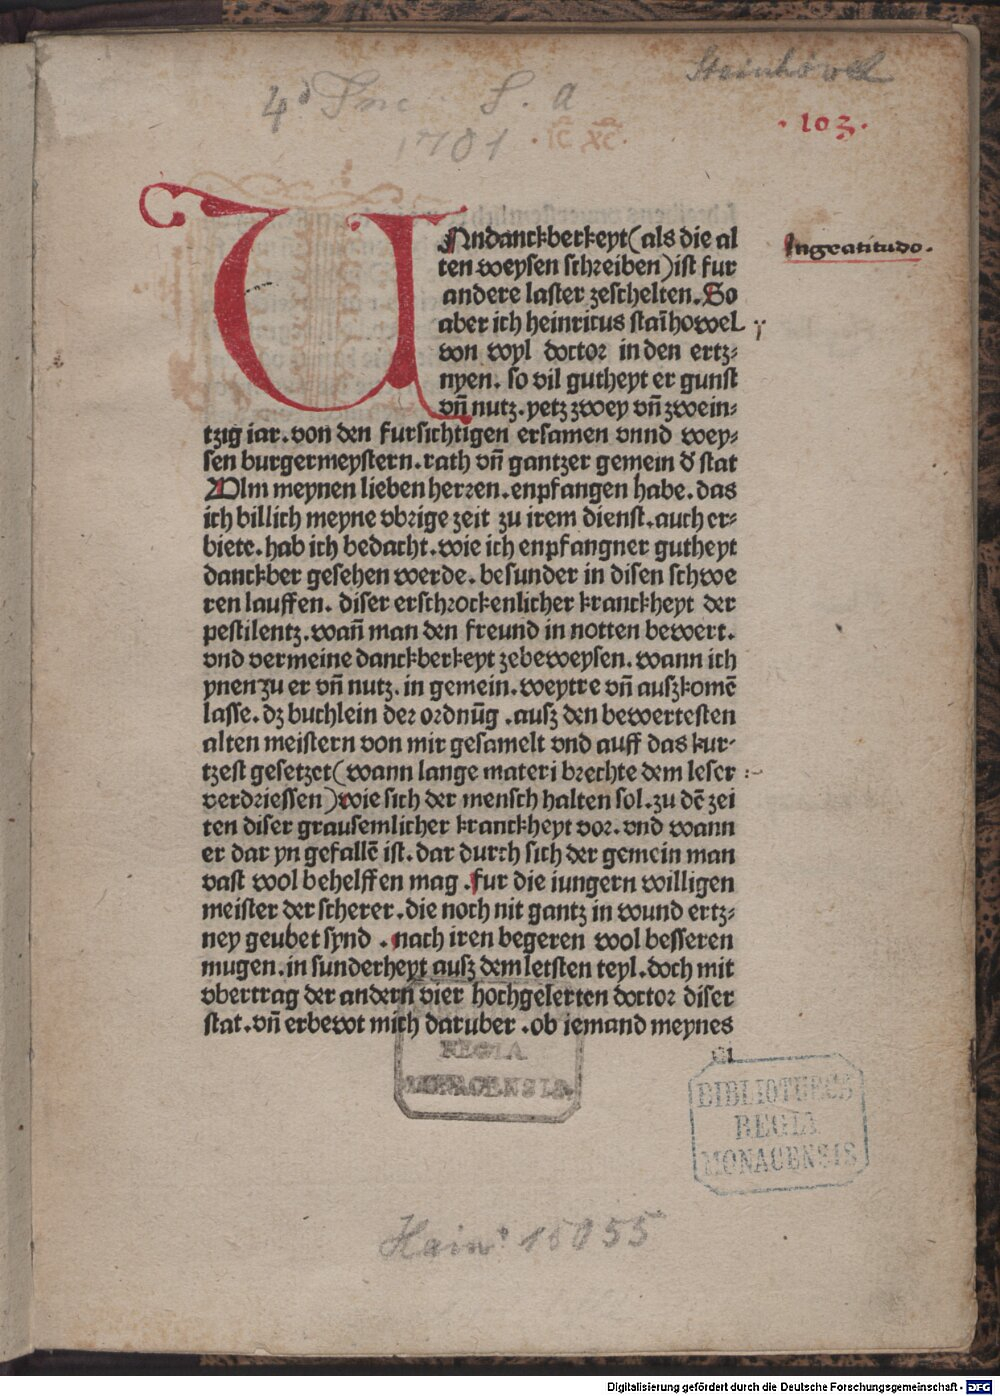 Steinhöwel
4° Inc. s. a.
1701
· IC XC ·
· 103 ·
Ingratitudo.
UNdanckberkeyt (als die al
ten weysen schreiben) ist fur
andere laster zeschelten. So
aber ich heinricus stai͂howel
von wyl doctor in den ertz⸗
nyen. so vil gutheyt er gunst
vñ nutz. yetz zwey vñ zwein⸗
tzig iar. von den fursichtigen ersamen vnnd wey⸗
sen burgermeystern. rath vñ gantzer gemein d̕ stat
Vlm meynen lieben herren. enpfangen habe. das
ich billich meyne vbrige zeit zu irem dienst. auch er⸗
biete. hab ich bedacht. wie ich enpfangner gutheyt
danckber gesehen werde. besunder in disen schwe
ren lauffen. diser erschrockenlicher kranckheyt der
pestilentz. wañ man den freund in notten bewert.
vnd vermeine danckberkeyt zebeweysen. wann ich
ynen zu er vñ nutz. in gemein. weytre vñ auszkomē
lasse. dz buchlein der ordnūg . ausz den bewertesten
alten meistern von mir gesamelt vnd auff das kur⸗
tzest gesetzet (wann lange materi brechte dem leser
verdriessen) wie sich der mensch halten sol. zu dē zei
ten diser grausemlicher kranckheyt vor. vnd wann
er dar yn gefallē ist. dar durch sich der gemein man
vast wol behelffen mag . fur die iungern willigen
meister der scherer. die noch nit gantz in wund ertz⸗
ney geubet synd . nach iren begeren wol besseren
mugen. in sunderheyt ausz dem letsten teyl. doch mit
vbertrag der andern vier hochgelerten doctor diser
stat. vñ erbewt mich daruber . ob iemand meynes
REGIA
MONACENSIS.
BIBLIOTHECA
REGIA
MONACENSIS
Hain° 15055
Digitalisierung gefördert durch die Deutsche Forschungsgemeinschaft - DFG